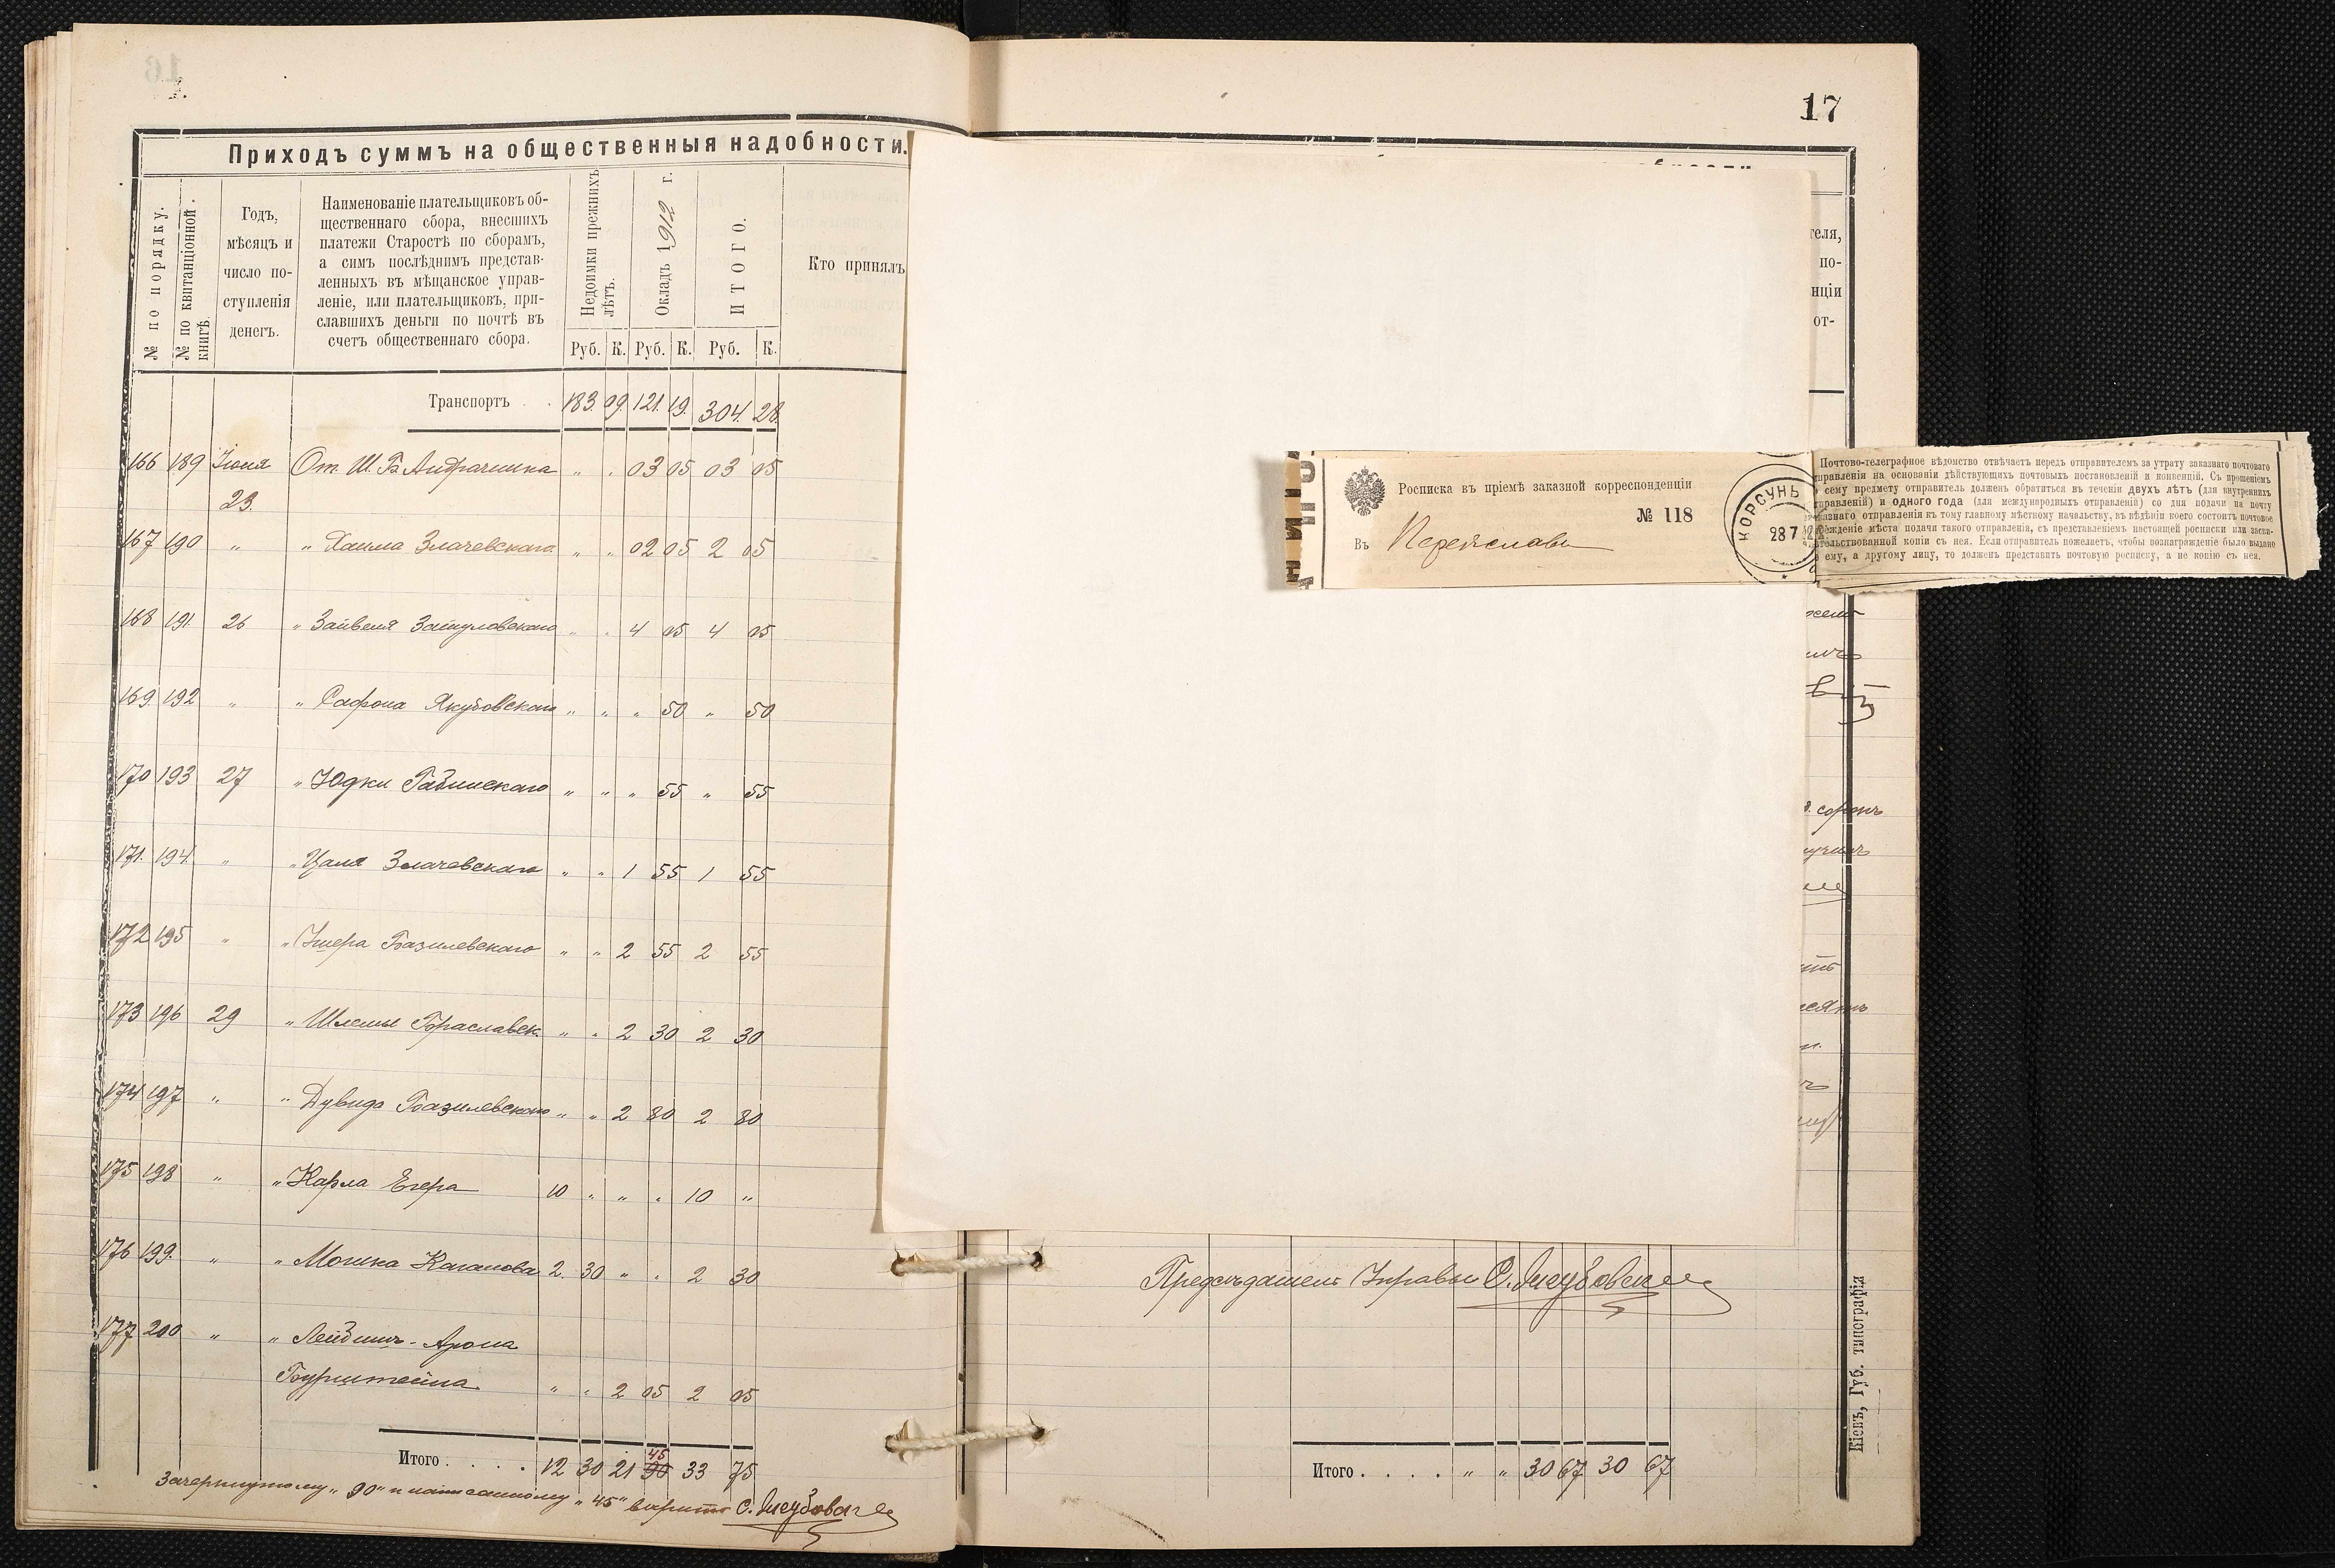 17
Приходъ суммъ на общественныя надобности.
№ по порядку.
№ по квитанціонной книгѣ.
Годъ,
мѣсяцъ и
число по-
ступленія
денегъ.
Наименованіе плательщиковъ об-
щественнаго сбора, внесшихъ
платежи Старостѣ по сборамъ,
а симъ послѣднимъ представ-
ленныхъ въ мѣщанское управ-
леніе, или плательщиковъ, при-
славшихъ деньги по почтѣ въ
счетъ общественнаго сбора.
Недоимки прежнихъ лѣтъ.
Окладъ 1912 г.
ИТОГО.
Кто принялъ
Руб. К. Руб. К. Руб. К.
Транспортъ . . 183. 09. 121. 19. 304. 28.
166 189 Іюня От Ш. Б. " . 03 05 03 05
23.
167 190 " " Хаима Злачевскаго " . 02 05 2 05
168 191 26 " Зайвеля " . 4 05 4 05
169. 192 " " Сафона Якубовскаго " " " 50 " 50
170 193 27 " Юдки " " " 55 " 55
171. 194. " " Цаля Злачевскаго " " 1 55 1 55
172 195 " " Ушера Базилевскаго " " 2 55 2 55
173 196 29 " Шлемы Бораславск. " " 2 30 2 30
174 197 " " Дувида Базилевскаго " " 2 80 2 80
175 198 " " Карла Егера 10 " " " 10 "
176 199. " " Мошка Каганова 2. 30 " " 2 30
177 200 " " Арона
Бурштейна " " 2 05 2 05
45
Итого . . . . 12 30 21 90 33 75
Зачеркнутому „90“ и написанному „45“ вѣрить
теля,
по-
нціи
от-
Росписка въ пріемѣ заказной корреспонденціи
№ 118
Въ Переяславъ
КОРСУНЬ
28 7 12
Почтово-телеграфное вѣдомство отвѣчаетъ передъ отправителемъ за утрату заказнаго почтоваго
правленія на основаніи дѣйствующихъ почтовыхъ постановленій и конвенцій. Съ прошеніемъ
сему предмету отправитель долженъ обратиться въ теченіи двухъ лѣтъ (для внутреннихъ
правленій) и одного года (для международныхъ отправленій) со дня подачи на почту
казнаго отправленія къ тому главному мѣстному начальству, къ вѣдѣніи коего состоитъ почтовое
еждѣніе мѣста подачи такого отправленія, съ представленіемъ настоящей росписки или засви-
тельствованной копіи съ нея. Если отправитель пожелаетъ, чтобы вознагражденіе было выдано
ему, а другому лицу, то долженъ представить почтовую росписку, а не копію съ нея.
Предсѣдатель Управы
Кіевъ, Губ. типографія
Итого . . . . " " 30 67 30 67